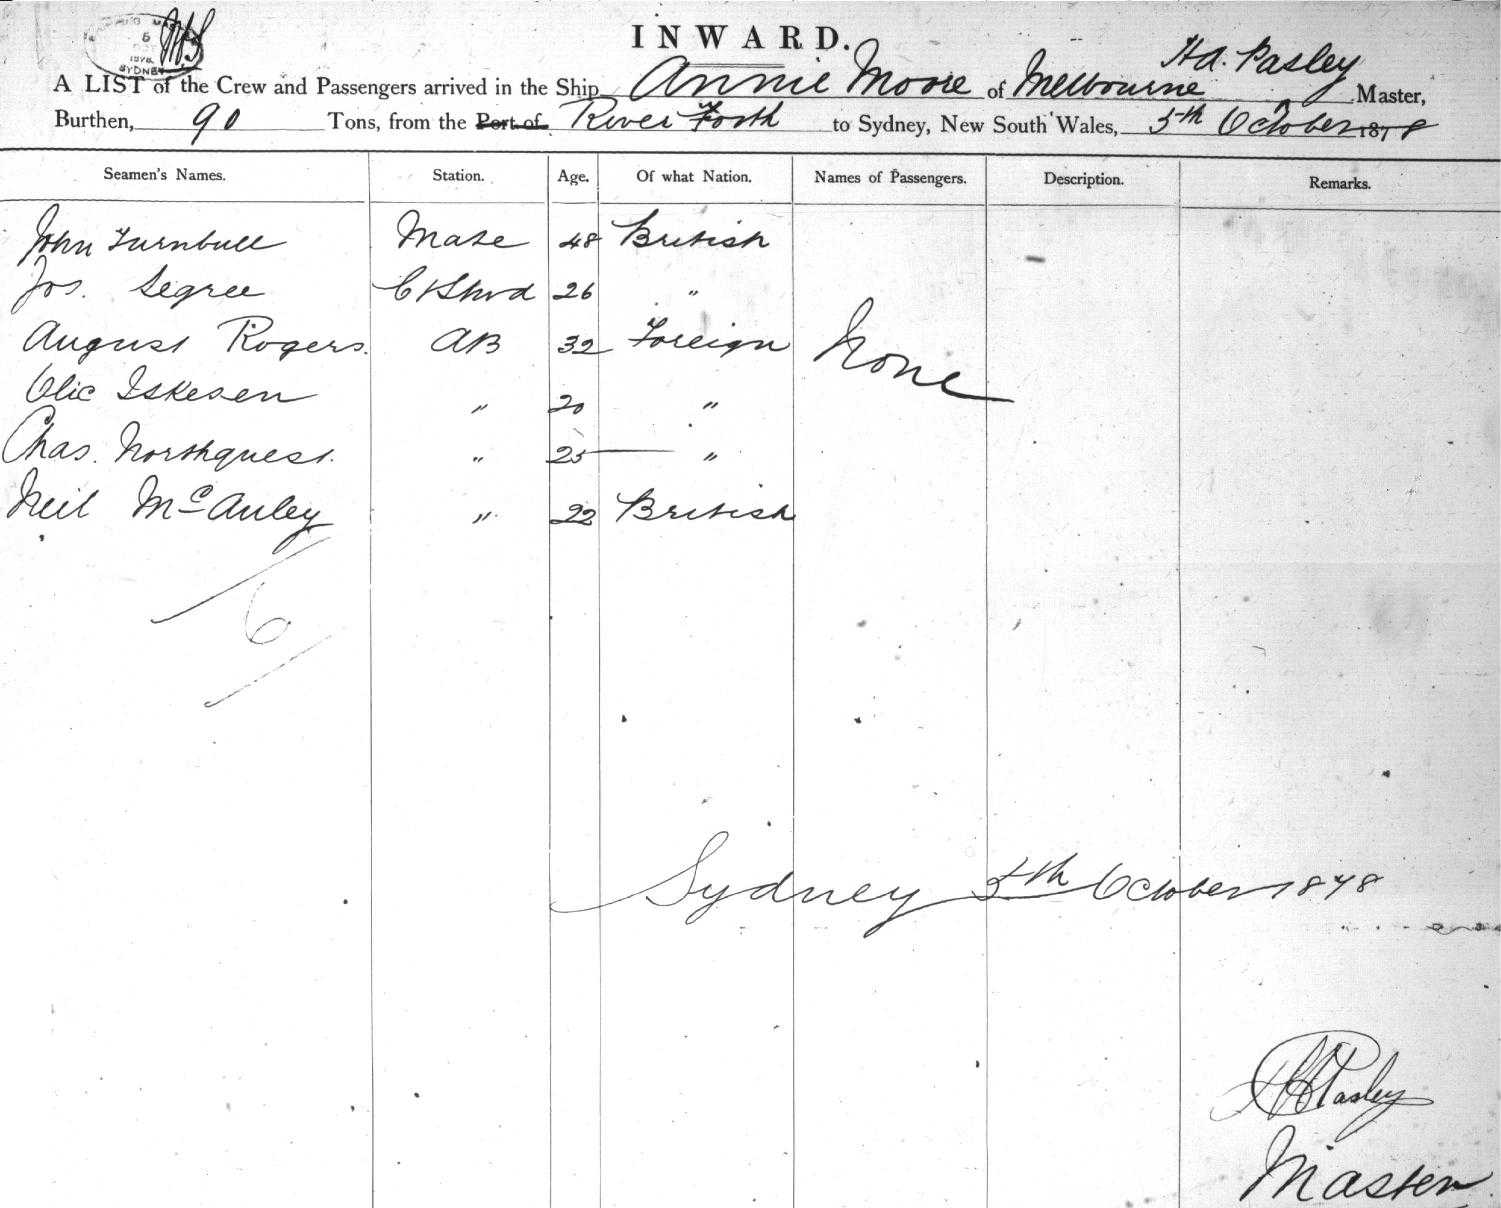 5
1878
SYDNEY
INWARD.
Hd. Pasley
A LIST of the Crew and Passengers arrived in the Ship Annie Moore of Melbourne Master,
Burthen, 90 Tons, from the Port of River Forth to Sydney, New South Wales, 5th October 1878
Seamen's Names. Station. Age. Of what Nation. Names of Passengers. Description. Remarks.
John Turnbull Mate 48 British
Jos. Segree C & Stwd 26 "
August Rogers. AB 32 Foreign None
Olic Iskesen " 20 "
Chas. Northquest. " 25 "
Neil McAuley " 22 British
6
Sydney 5th October 1878
Pasley
Master